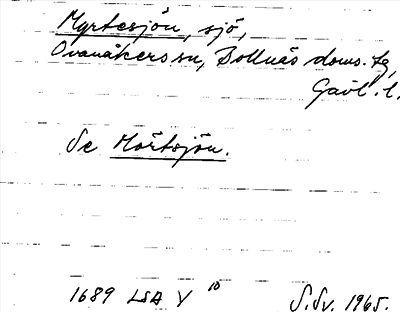 Myrtesjön, sjö,
Ovanåkers sn, Bollnäs doms. tg,
Gävl. l.
Se Mörtsjön.
1689 LSA V 10
S.Sv. 1965.